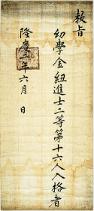 敎旨
幼學金紐進士二等第十六人入格者
隆慶 年六月 日